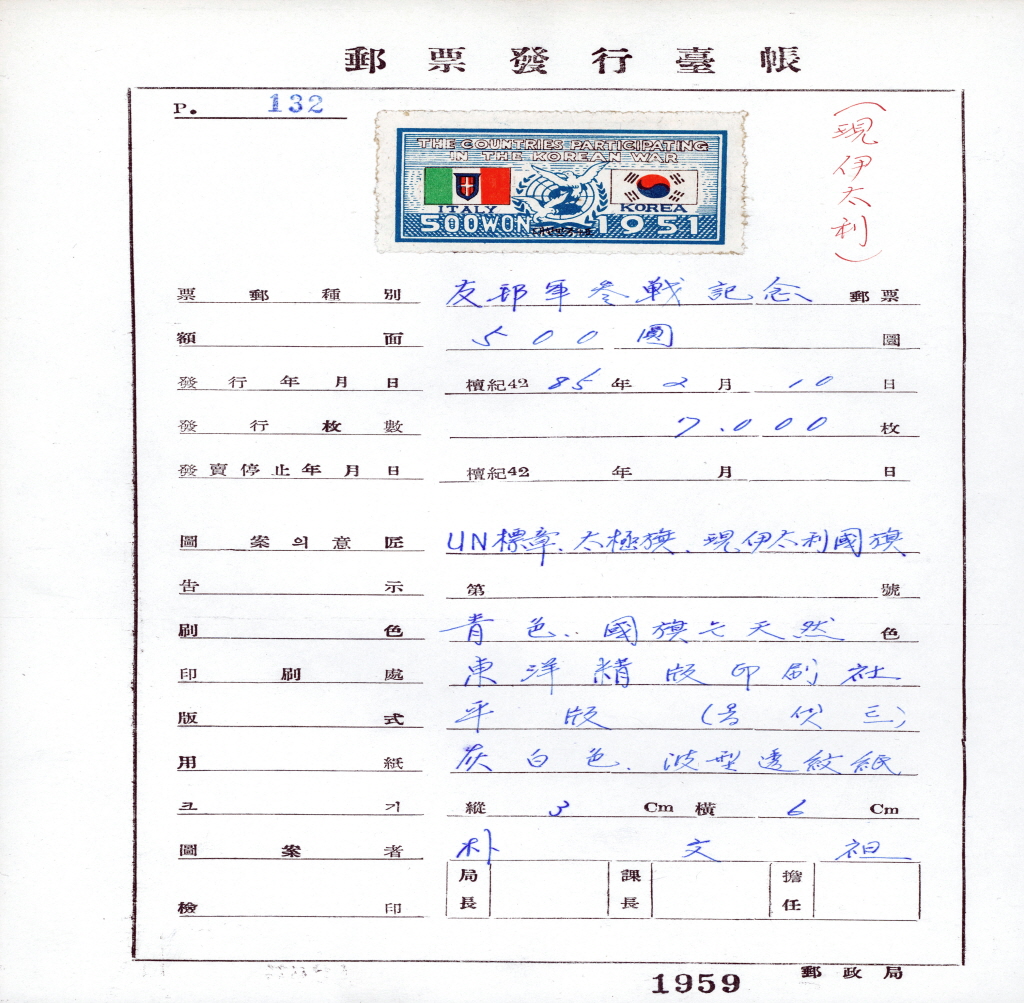 郵票發行臺帳
P. 132
THE COUNTRIES PARTICIPATING
IN THE KOREAN WAR
ITALY KOREA
500WON 1951
(現伊太利)
票郵種別 友邦軍參戰記念 郵票
額面 500圓 圜
發行年月日 檀紀4285年2月10日
發行枚數 7.000枚
發賣停止年月日 檀紀42 年 月 日
圖案의意匠 UN標章、太極旗、現伊太利國旗
告示 第 號
刷色 青色..國旗는天然色
印刷處 東洋精版印刷社
版式 平版
用紙 灰白色.波型透紋紙
크기 縱 3 Cm 橫 6 Cm
圖案者 朴文祖
檢印 局長 課長 擔任
1959 郵政局